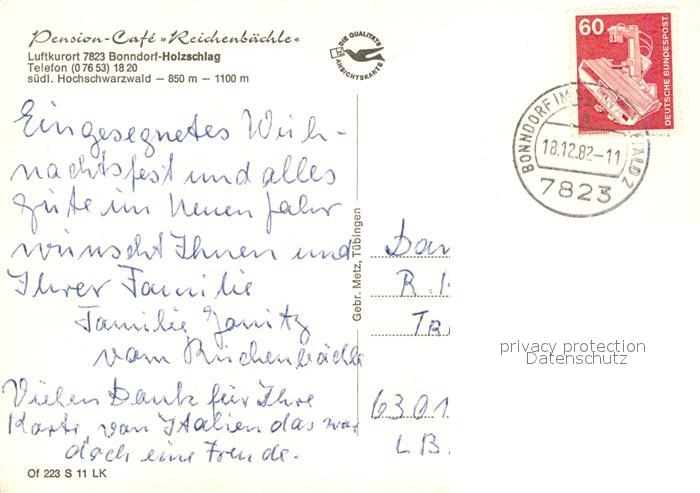 Pension-Café »Reichenbächle«
Luftkurort 7823 Bonndorf-Holzschlag
Telefon (0 76 53) 18 20
südl. Hochschwarzwald – 850 m – 1100 m
DIE QUALITÄTS
ANSICHTSKARTE
60
DEUTSCHE BUNDESPOST
BONNDORF IM SCHWARZWALD 2
18.12.82-11
7823
Ein gesegnetes Weih-
nachtsfest und alles
Gute im Neuen Jahr
wünscht Ihnen und
Ihrer Familie
Familie Janitz
vom Reichenbächle
Vielen Dank für Ihre
Karte von Italien das war
doch eine Freude.
Gebr. Metz, Tübingen
R.
6301
LB
privacy protection
Datenschutz
Of 223 S 11 LK